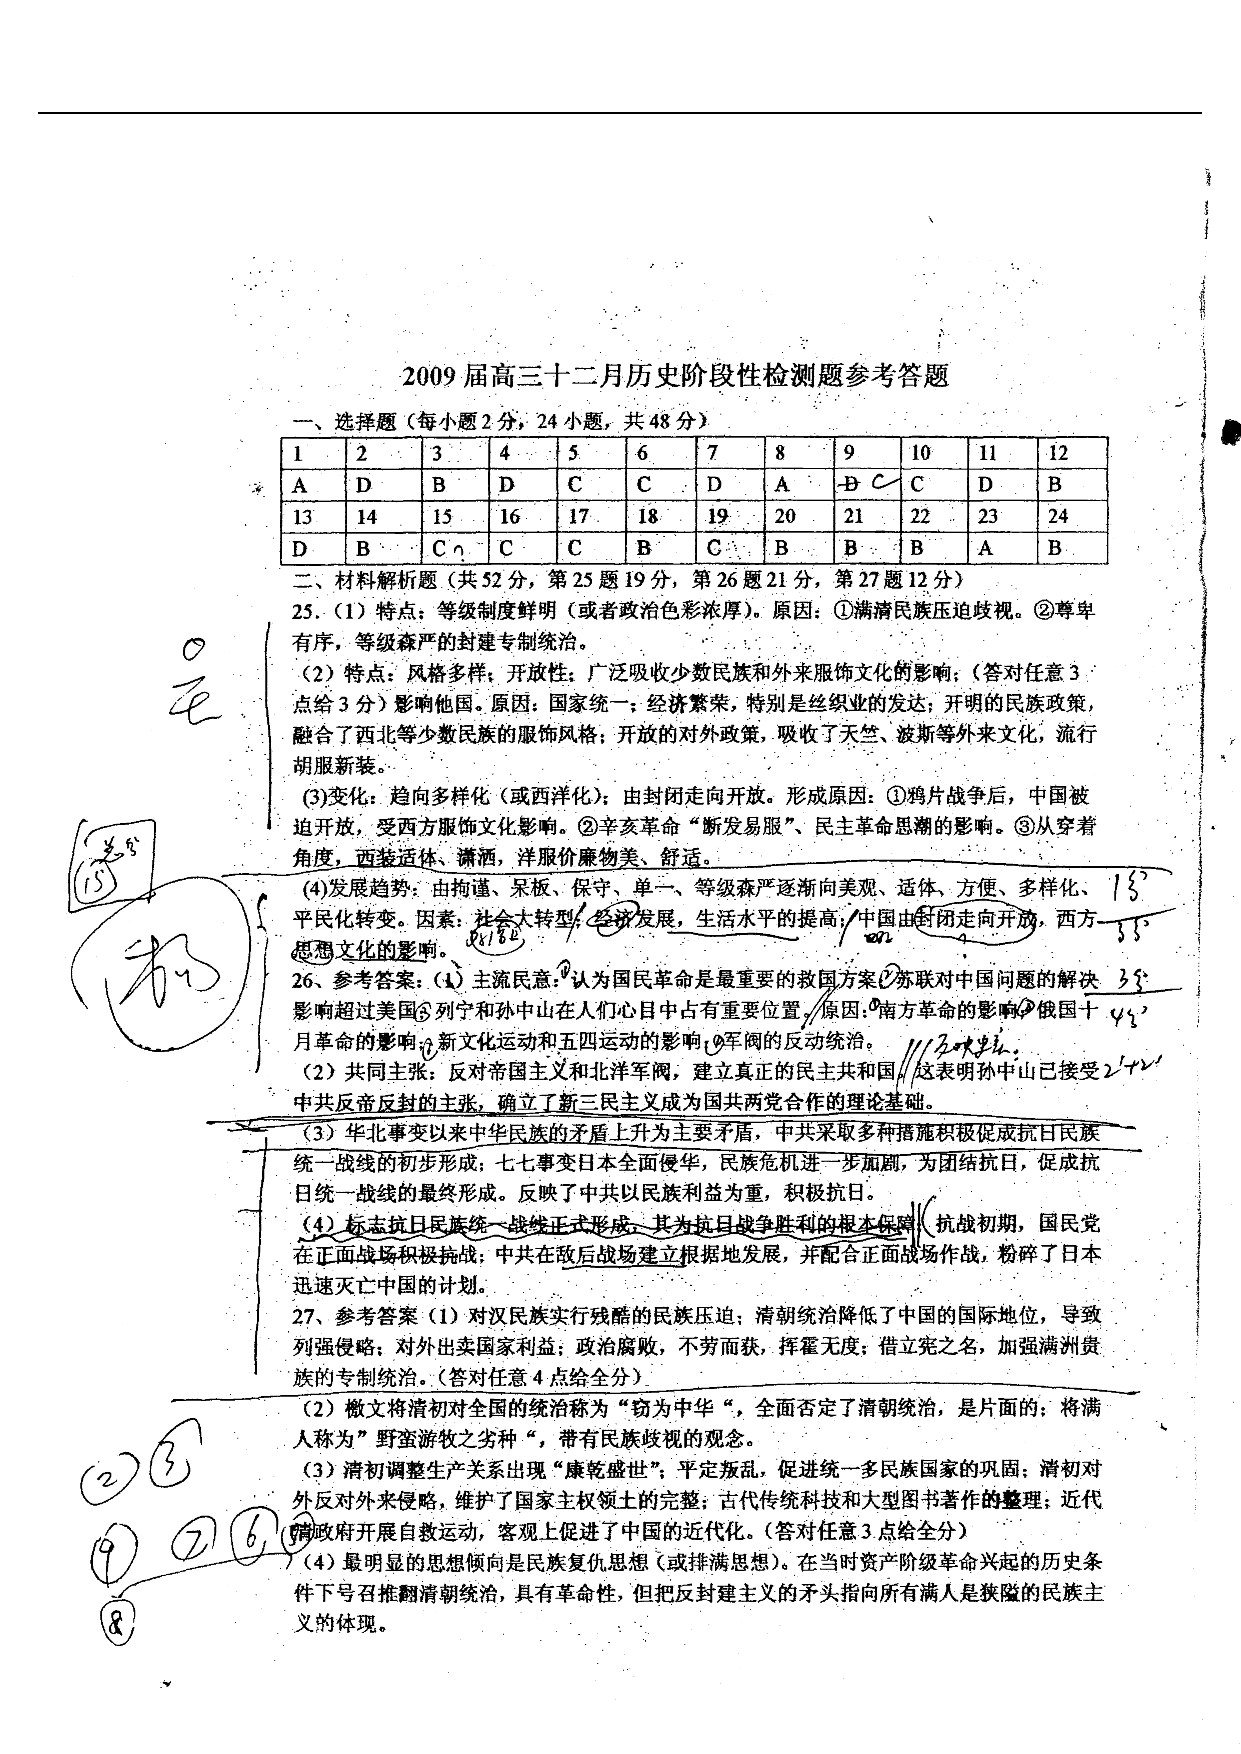 2009 届高三十二月历史阶段性检测题参考答题
一、选择题（每小题2分，24小题，共48分）
1 2 3 4 5 6 7 8 9 10 11 12
A D B D C C D A D C C D B
13 14 15 16 17 18 19 20 21 22 23 24
D B C C C B C B B B A B
二、材料解析题（共52分，第25题19分，第26题21分，第27题12分）
25.（1）特点：等级制度鲜明（或者政治色彩浓厚）。原因：①满清民族压迫歧视。②尊卑
有序，等级森严的封建专制统治。
（2）特点：风格多样；开放性；广泛吸收少数民族和外来服饰文化的影响；（答对任意3
点给3分）影响他国。原因：国家统一；经济繁荣，特别是丝织业的发达；开明的民族政策，
融合了西北等少数民族的服饰风格；开放的对外政策，吸收了天竺、波斯等外来文化，流行
胡服新装。
(3)变化：趋向多样化（或西洋化）；由封闭走向开放。形成原因：①鸦片战争后，中国被
迫开放，受西方服饰文化影响。②辛亥革命“断发易服”、民主革命思潮的影响。③从穿着
角度，西装适体、潇洒，洋服价廉物美、舒适。
总分
15
(4)发展趋势：由拘谨、呆板、保守、单一、等级森严逐渐向美观、适体、方便、多样化、 1分
平民化转变。因素：社会大转型；经济发展，生活水平的提高；中国由封闭走向开放，西方 3分
思想文化的影响。
26、参考答案：（1）主流民意：①认为国民革命是最重要的救国方案②苏联对中国问题的解决 3分
影响超过美国③列宁和孙中山在人们心目中占有重要位置。原因：①南方革命的影响②俄国十 4分
月革命的影响；③新文化运动和五四运动的影响④军阀的反动统治。
（2）共同主张：反对帝国主义和北洋军阀，建立真正的民主共和国。这表明孙中山已接受 2'+2'
中共反帝反封的主张，确立了新三民主义成为国共两党合作的理论基础。
（3）华北事变以来中华民族的矛盾上升为主要矛盾，中共采取多种措施积极促成抗日民族
统一战线的初步形成；七七事变日本全面侵华，民族危机进一步加剧，为团结抗日，促成抗
日统一战线的最终形成。反映了中共以民族利益为重，积极抗日。
（4）标志抗日民族统一战线正式形成，其为抗日战争胜利的根本保障。抗战初期，国民党
在正面战场积极抗战；中共在敌后战场建立根据地发展，并配合正面战场作战，粉碎了日本
迅速灭亡中国的计划。
27、参考答案（1）对汉民族实行残酷的民族压迫；清朝统治降低了中国的国际地位，导致
列强侵略；对外出卖国家利益；政治腐败，不劳而获，挥霍无度；借立宪之名，加强满洲贵
族的专制统治。（答对任意4点给全分）
（2）檄文将清初对全国的统治称为“窃为中华“，全面否定了清朝统治，是片面的；将满
人称为”野蛮游牧之劣种“，带有民族歧视的观念。
② ③
（3）清初调整生产关系出现“康乾盛世”；平定叛乱，促进统一多民族国家的巩固；清初对
外反对外来侵略，维护了国家主权领土的完整；古代传统科技和大型图书著作的整理；近代
清政府开展自救运动，客观上促进了中国的近代化。（答对任意3点给全分）
⑨ ⑦ ⑥ ⑤
（4）最明显的思想倾向是民族复仇思想（或排满思想）。在当时资产阶级革命兴起的历史条
件下号召推翻清朝统治，具有革命性，但把反封建主义的矛头指向所有满人是狭隘的民族主
义的体现。
⑧